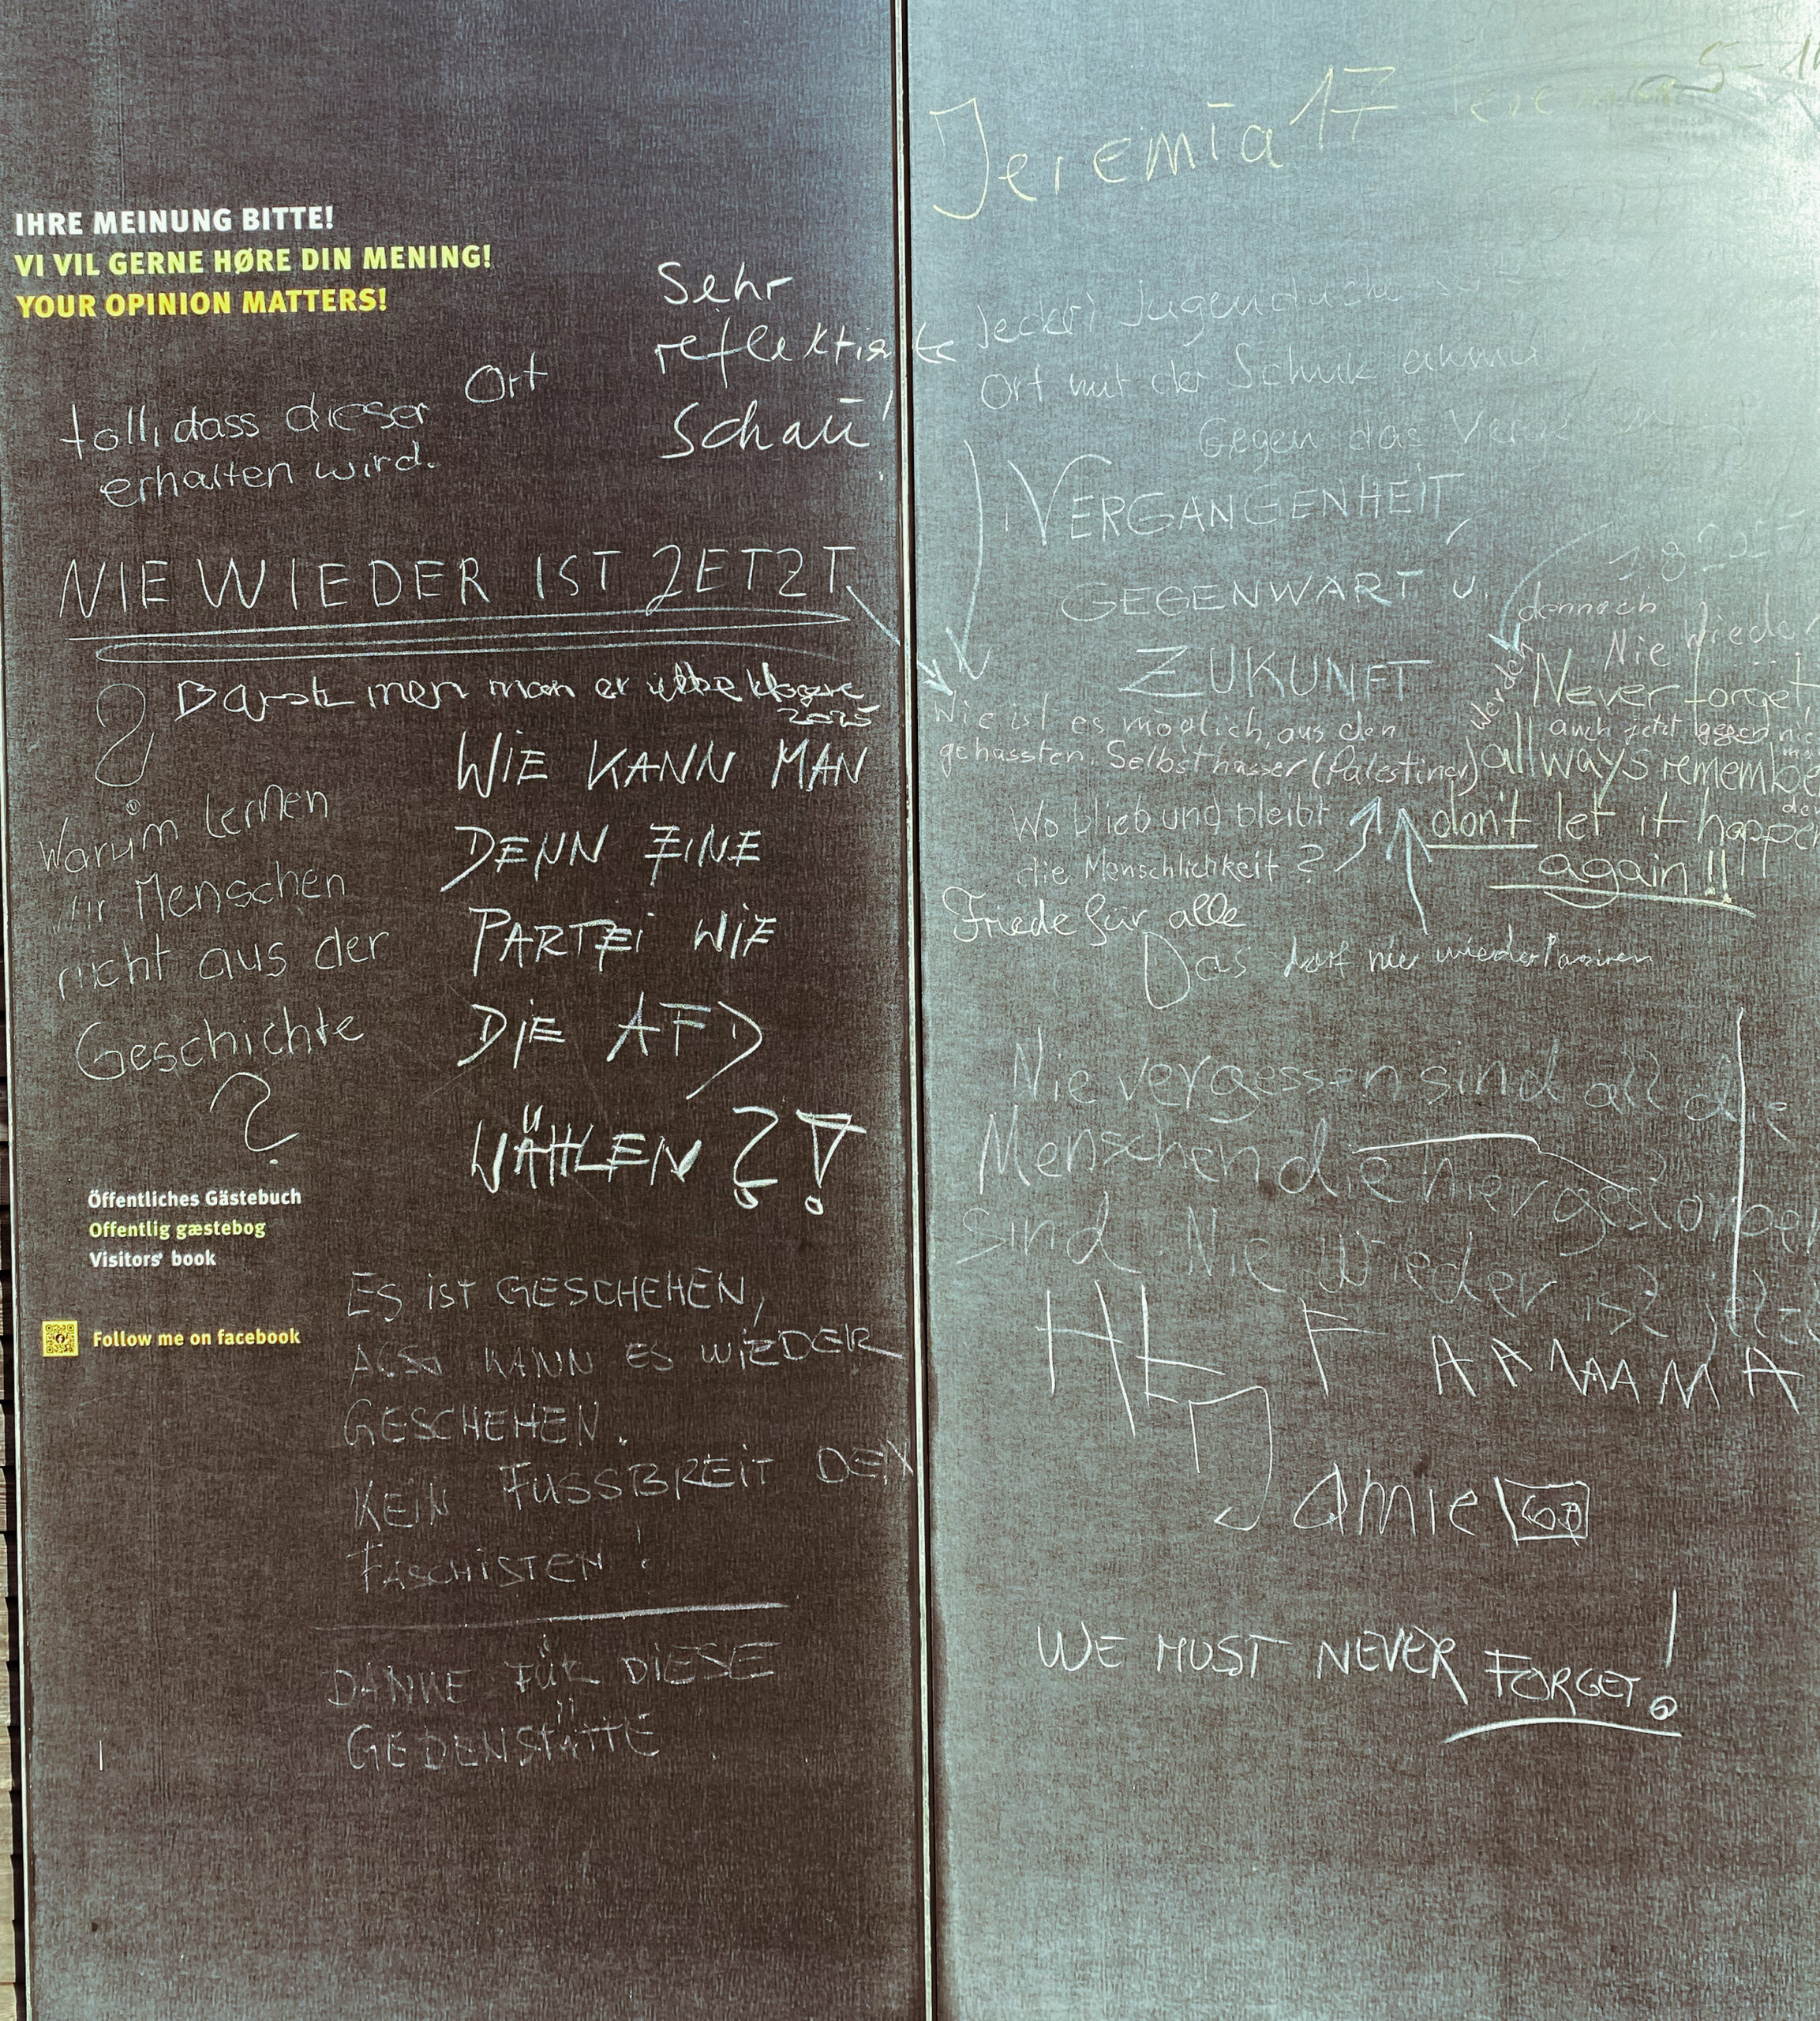 IHRE MEINUNG BITTE!
VI VIL GERNE HØRE DIN MENING!
YOUR OPINION MATTERS!
Sehr
reflektierte
Schau!
toll, dass dieser Ort
erhalten wird.
NIE WIEDER IST JETZT
men man er
2025
Warum lernen
wir Menschen
nicht aus der
Geschichte
?
WIE KANN MAN
DENN EINE
PARTEI WIE
DIE AFD
WÄHLEN ?!
Öffentliches Gästebuch
Offentlig gæstebog
Visitors' book
Follow me on facebook
ES IST GESCHEHEN,
ALSO KANN ES WIEDER
GESCHEHEN.
KEIN FUSSBREIT DEN
FASCHISTEN!
DANKE FÜR DIESE
GEDENSTÄTTE
Jeremia 17
5-
Ort mit der Schule
Gegen das
VERGANGENHEIT,
GEGENWART u.
ZUKUNFT
dennoch
Nie wieder
Never forget
auch jetzt
allways remembe
don't let it happe
again!!
Wie ist es möglich, aus den
gehassten, Selbsthasser (Palestina)
werden
Wo blieb und bleibt
die Menschlichkeit?
Friede für alle
Das darf nie wieder
Nie vergessen sind all die
Menschen die hier gestorben
sind. Nie Wieder ist jetzt
Jamie
WE MUST NEVER FORGET!